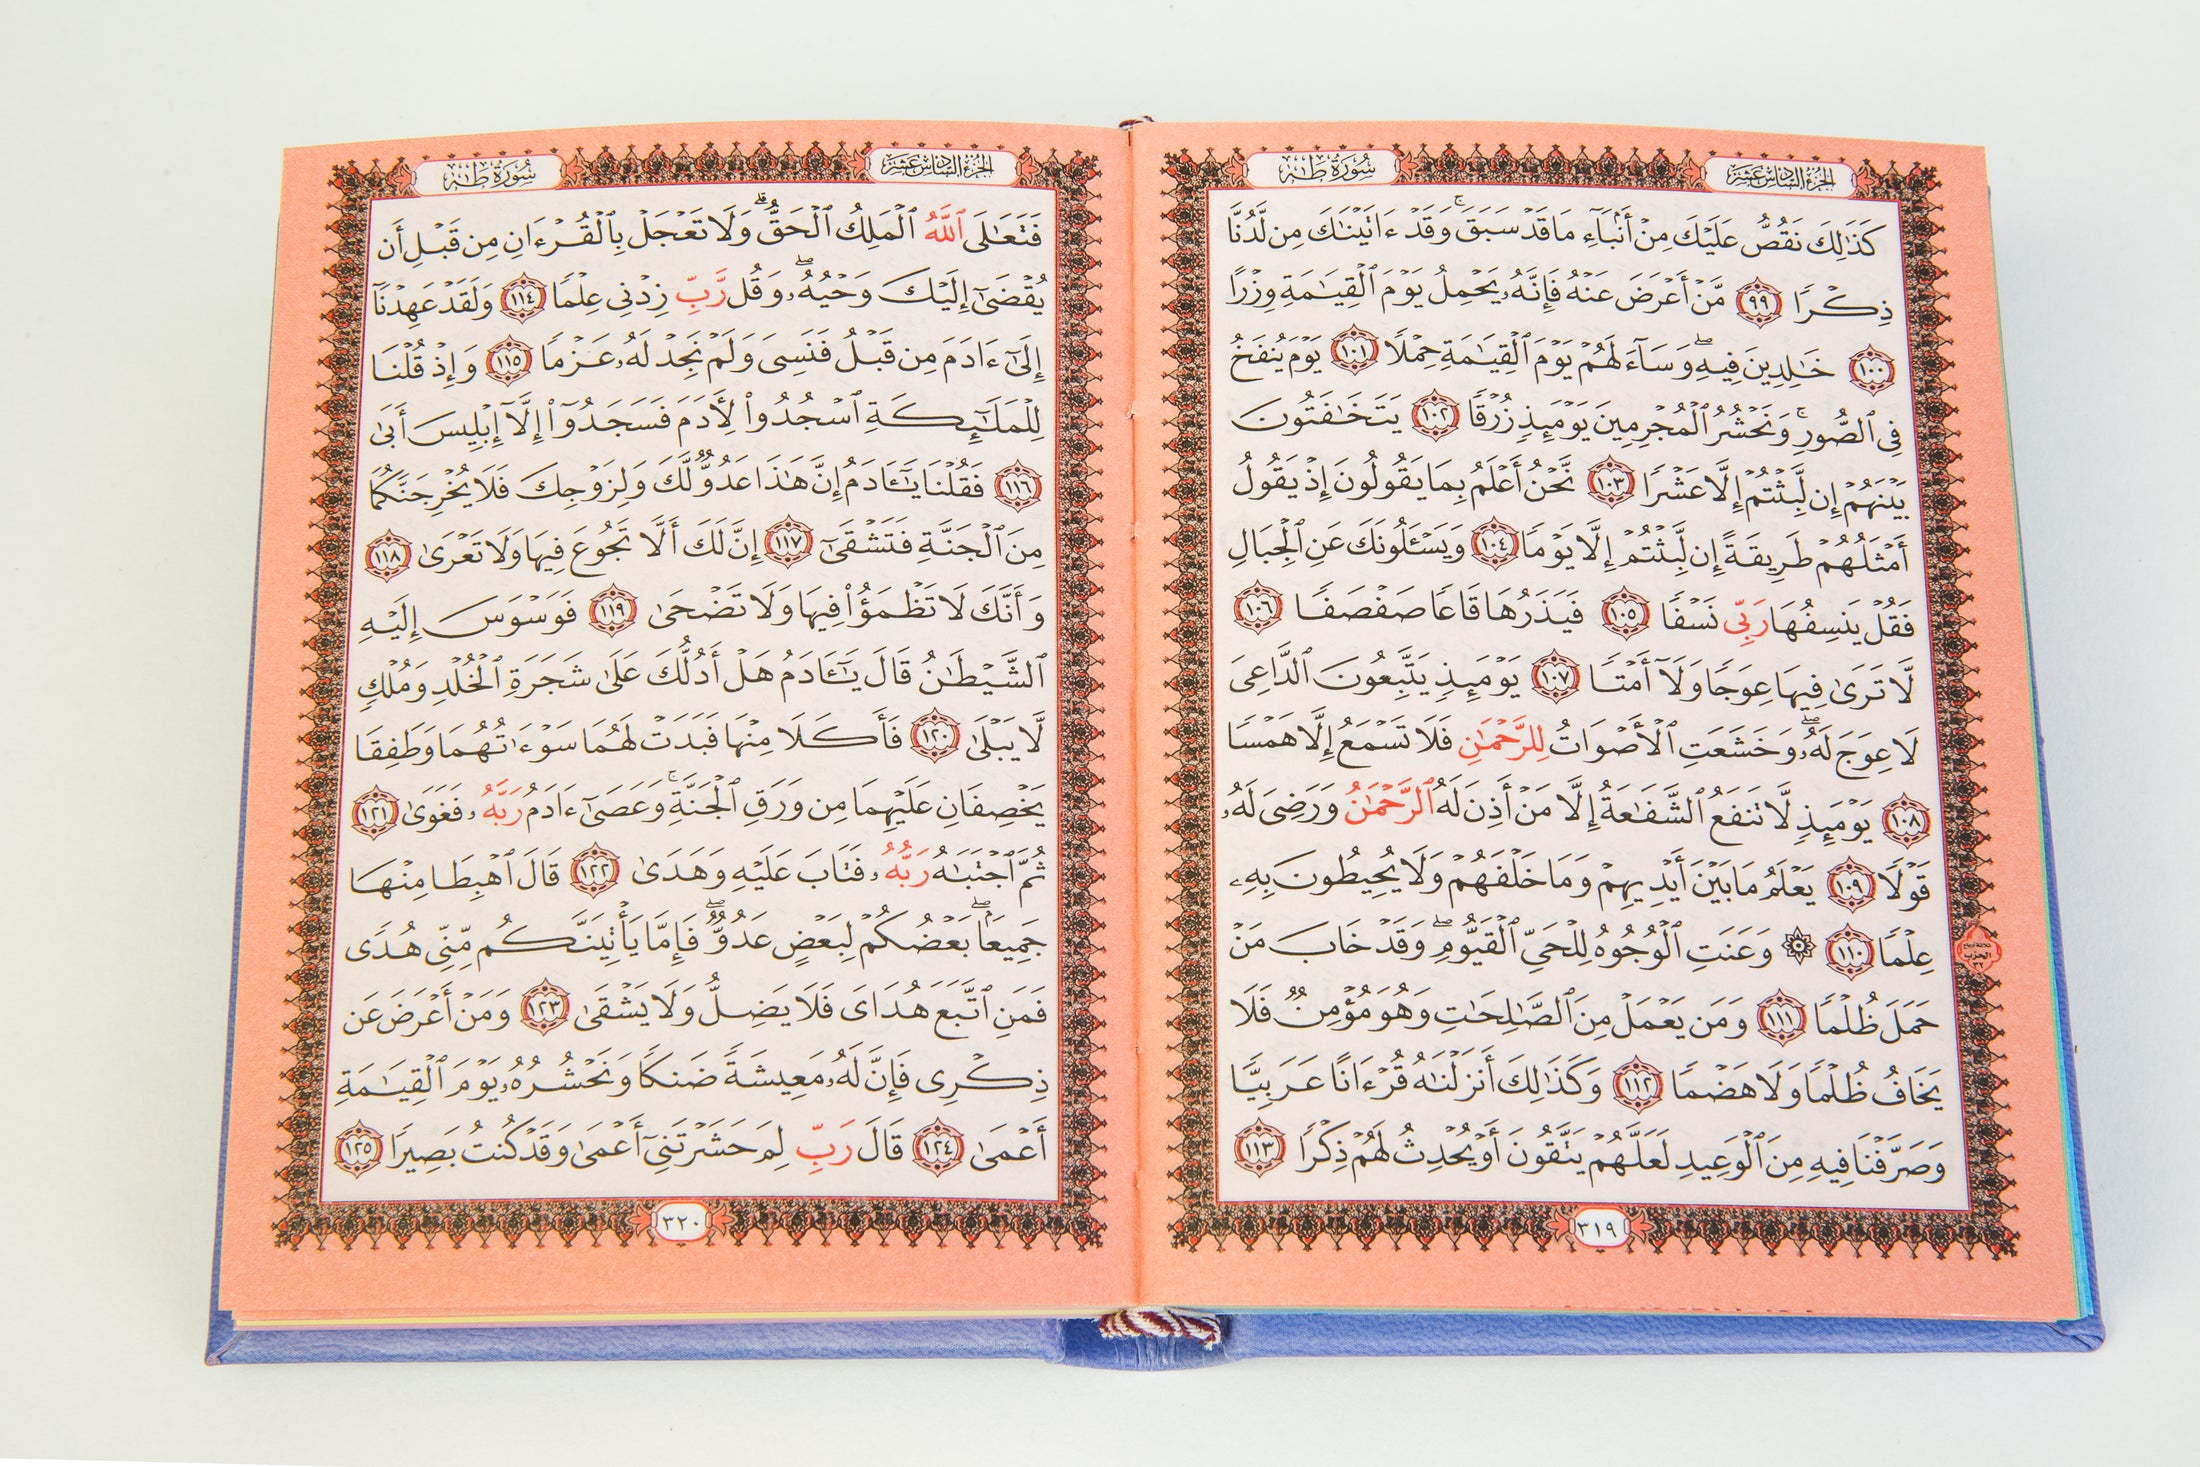 الجزء السادس عشر
سورة طه
كَذَٰلِكَ نَقُصُّ عَلَيْكَ مِنْ أَنۢبَآءِ مَا قَدْ سَبَقَ ۚ وَقَدْ ءَاتَيْنَٰكَ مِن لَّدُنَّا
ذِكْرًا ٩٩ مَّنْ أَعْرَضَ عَنْهُ فَإِنَّهُۥ يَحْمِلُ يَوْمَ ٱلْقِيَٰمَةِ وِزْرًا
١٠٠ خَٰلِدِينَ فِيهِ ۖ وَسَآءَ لَهُمْ يَوْمَ ٱلْقِيَٰمَةِ حِمْلًا ١٠١ يَوْمَ يُنفَخُ
فِى ٱلصُّورِ ۚ وَنَحْشُرُ ٱلْمُجْرِمِينَ يَوْمَئِذٍ زُرْقًا ١٠٢ يَتَخَٰفَتُونَ
بَيْنَهُمْ إِن لَّبِثْتُمْ إِلَّا عَشْرًا ١٠٣ نَّحْنُ أَعْلَمُ بِمَا يَقُولُونَ إِذْ يَقُولُ
أَمْثَلُهُمْ طَرِيقَةً إِن لَّبِثْتُمْ إِلَّا يَوْمًا ١٠٤ وَيَسْـَٔلُونَكَ عَنِ ٱلْجِبَالِ
فَقُلْ يَنسِفُهَا رَبِّى نَسْفًا ١٠٥ فَيَذَرُهَا قَاعًا صَفْصَفًا ١٠٦
لَّا تَرَىٰ فِيهَا عِوَجًا وَلَآ أَمْتًا ١٠٧ يَوْمَئِذٍ يَتَّبِعُونَ ٱلدَّاعِىَ
لَا عِوَجَ لَهُۥ ۖ وَخَشَعَتِ ٱلْأَصْوَاتُ لِلرَّحْمَٰنِ فَلَا تَسْمَعُ إِلَّا هَمْسًا
١٠٨ يَوْمَئِذٍ لَّا تَنفَعُ ٱلشَّفَٰعَةُ إِلَّا مَنْ أَذِنَ لَهُ ٱلرَّحْمَٰنُ وَرَضِىَ لَهُۥ
قَوْلًا ١٠٩ يَعْلَمُ مَا بَيْنَ أَيْدِيهِمْ وَمَا خَلْفَهُمْ وَلَا يُحِيطُونَ بِهِۦ
عِلْمًا ١١٠ ۞ وَعَنَتِ ٱلْوُجُوهُ لِلْحَىِّ ٱلْقَيُّومِ ۖ وَقَدْ خَابَ مَنْ
حَمَلَ ظُلْمًا ١١١ وَمَن يَعْمَلْ مِنَ ٱلصَّٰلِحَٰتِ وَهُوَ مُؤْمِنٌ فَلَا
يَخَافُ ظُلْمًا وَلَا هَضْمًا ١١٢ وَكَذَٰلِكَ أَنزَلْنَٰهُ قُرْءَانًا عَرَبِيًّا
وَصَرَّفْنَا فِيهِ مِنَ ٱلْوَعِيدِ لَعَلَّهُمْ يَتَّقُونَ أَوْ يُحْدِثُ لَهُمْ ذِكْرًا ١١٣
٣١٩
الجزء السادس عشر
سورة طه
فَتَعَٰلَى ٱللَّهُ ٱلْمَلِكُ ٱلْحَقُّ ۗ وَلَا تَعْجَلْ بِٱلْقُرْءَانِ مِن قَبْلِ أَن
يُقْضَىٰٓ إِلَيْكَ وَحْيُهُۥ ۖ وَقُل رَّبِّ زِدْنِى عِلْمًا ١١٤ وَلَقَدْ عَهِدْنَآ
إِلَىٰٓ ءَادَمَ مِن قَبْلُ فَنَسِىَ وَلَمْ نَجِدْ لَهُۥ عَزْمًا ١١٥ وَإِذْ قُلْنَا
لِلْمَلَٰٓئِكَةِ ٱسْجُدُوا۟ لِءَادَمَ فَسَجَدُوٓا۟ إِلَّآ إِبْلِيسَ أَبَىٰ
١١٦ فَقُلْنَا يَٰٓـَٔادَمُ إِنَّ هَٰذَا عَدُوٌّ لَّكَ وَلِزَوْجِكَ فَلَا يُخْرِجَنَّكُمَا
مِنَ ٱلْجَنَّةِ فَتَشْقَىٰٓ ١١٧ إِنَّ لَكَ أَلَّا تَجُوعَ فِيهَا وَلَا تَعْرَىٰ ١١٨
وَأَنَّكَ لَا تَظْمَؤُا۟ فِيهَا وَلَا تَضْحَىٰ ١١٩ فَوَسْوَسَ إِلَيْهِ
ٱلشَّيْطَٰنُ قَالَ يَٰٓـَٔادَمُ هَلْ أَدُلُّكَ عَلَىٰ شَجَرَةِ ٱلْخُلْدِ وَمُلْكٍ
لَّا يَبْلَىٰ ١٢٠ فَأَكَلَا مِنْهَا فَبَدَتْ لَهُمَا سَوْءَٰتُهُمَا وَطَفِقَا
يَخْصِفَانِ عَلَيْهِمَا مِن وَرَقِ ٱلْجَنَّةِ ۚ وَعَصَىٰٓ ءَادَمُ رَبَّهُۥ فَغَوَىٰ ١٢١
ثُمَّ ٱجْتَبَٰهُ رَبُّهُۥ فَتَابَ عَلَيْهِ وَهَدَىٰ ١٢٢ قَالَ ٱهْبِطَا مِنْهَا
جَمِيعًۢا ۖ بَعْضُكُمْ لِبَعْضٍ عَدُوٌّ ۖ فَإِمَّا يَأْتِيَنَّكُم مِّنِّى هُدًى
فَمَنِ ٱتَّبَعَ هُدَاىَ فَلَا يَضِلُّ وَلَا يَشْقَىٰ ١٢٣ وَمَنْ أَعْرَضَ عَن
ذِكْرِى فَإِنَّ لَهُۥ مَعِيشَةً ضَنكًا وَنَحْشُرُهُۥ يَوْمَ ٱلْقِيَٰمَةِ
أَعْمَىٰ ١٢٤ قَالَ رَبِّ لِمَ حَشَرْتَنِىٓ أَعْمَىٰ وَقَدْ كُنتُ بَصِيرًا ١٢٥
٣٢٠